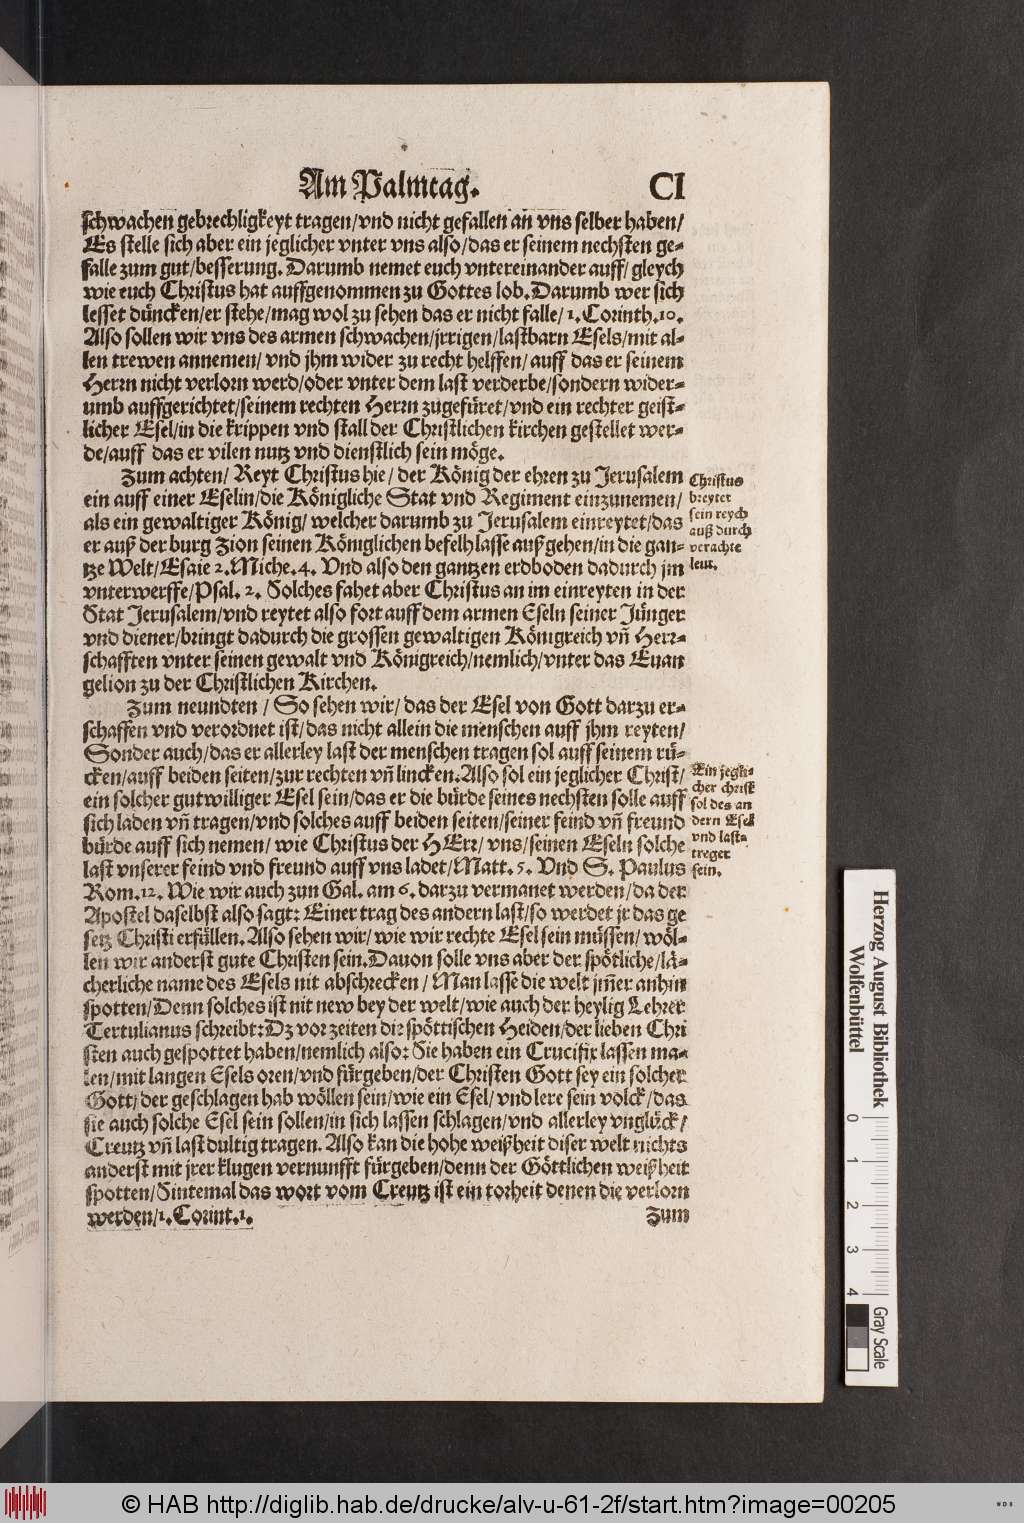 Am Palmtag. CI
schwachen gebrechligkeyt tragen/vnd nicht gefallen an vns selber haben/
Es stelle sich aber ein jeglicher vnter vns also/das er seinem nechsten ge-
falle zum gut/besserung. Darumb nemet euch vntereinander auff/ gleych
wie euch Christus hat auffgenommen zu Gottes lob. Darumb wer sich
lesset düncken/er stehe/mag wol zu sehen das er nicht falle/ 1. Corinth. 10.
Also sollen wir vns des armen schwachen/jrrigen/lastbarn Esels/mit al-
len trewen annemen/ vnd jhm wider zu recht helffen/ auff das er seinem
Herrn nicht verlorn werd/oder vnter dem last verderbe/sondern wider-
umb auffgerichtet/seinem rechten Herrn zugefüret/vnd ein rechter geist-
licher Esel/in die krippen vnd stall der Christlichen kirchen gestellet wer-
de/auff das er vilen nutz vnd dienstlich sein möge.
Zum achten/ Reyt Christus hie/ der König der ehren zu Jerusalem
ein auff einer Eselin/die Königliche Stat vnd Regiment einzunemen/
als ein gewaltiger König/ welcher darumb zu Jerusalem einreytet/das
er auß der burg Zion seinen Königlichen befelh lasse außgehen/in die gan-
tze Welt/Esaie 2. Miche. 4. Vnd also den gantzen erdboden dadurch jm
vnterwerffe/Psal. 2. Solches fahet aber Christus an im einreyten in der
Stat Jerusalem/vnd reytet also fort auff dem armen Eseln seiner Jünger
vnd diener/bringt dadurch die grossen gewaltigen Königreich vñ Herr-
schafften vnter seinen gewalt vnd Königreich/nemlich/vnter das Euan
gelion zu der Christlichen Kirchen.
Christus
breytet
sein reych
auß durch
verachte
leut.
Zum neundten / So sehen wir/ das der Esel von Gott darzu er-
schaffen vnd verordnet ist/das nicht allein die menschen auff jhm reyten/
Sonder auch/das er allerley last der menschen tragen sol auff seinem rü-
cken/auff beiden seiten/zur rechten vñ lincken. Also sol ein jeglicher Christ/
ein solcher gutwilliger Esel sein/das er die bürde seines nechsten solle auff
sich laden vñ tragen/vnd solches auff beiden seiten/seiner feind vñ freund
bürde auff sich nemen/ wie Christus der HErr/ vns/seinen Eseln solche
last vnserer feind vnd freund auff vns ladet/Matt. 5. Vnd S. Paulus
Rom. 12. Wie wir auch zun Gal. am 6. darzu vermanet werden/da der
Apostel daselbst also sagt: Einer trag des andern last/so werdet jr das ge
setz Christi erfüllen. Also sehen wir/ wie wir rechte Esel sein müssen/ wöl-
len wir anderst gute Christen sein. Dauon solle vns aber der spötliche/lä-
cherliche name des Esels nit abschrecken / Man lasse die welt jm̃er anhin
spotten/Denn solches ist nit new bey der welt/wie auch der heylig Lehrer
Tertulianus schreibt: Dz vor zeiten die spöttischen Heiden/der lieben Chri
sten auch gespottet haben/nemlich also: Sie haben ein Crucifix lassen ma-
len/mit langen Esels oren/vnd fürgeben/der Christen Gott sey ein solcher
Gott/ der geschlagen hab wöllen sein/wie ein Esel/ vnd lere sein volck/das
sie auch solche Esel sein sollen/in sich lassen schlagen/vnd allerley vnglück/
Creutz vñ last dultig tragen. Also kan die hohe weißheit diser welt nichts
anderst mit jrer klugen vernunfft fürgeben/denn der Göttlichen weißheit
spotten/Sintemal das wort vom Creutz ist ein torheit denen die verlorn
werden/1. Corint. 1. Zum
Ein jegli-
cher christ
sol des an
dern Esel
vnd last-
treger
sein.
Herzog August Bibliothek
Wolfenbüttel
0 1 2 3 4
Gray Scale
© HAB http://diglib.hab.de/drucke/alv-u-61-2f/start.htm?image=00205